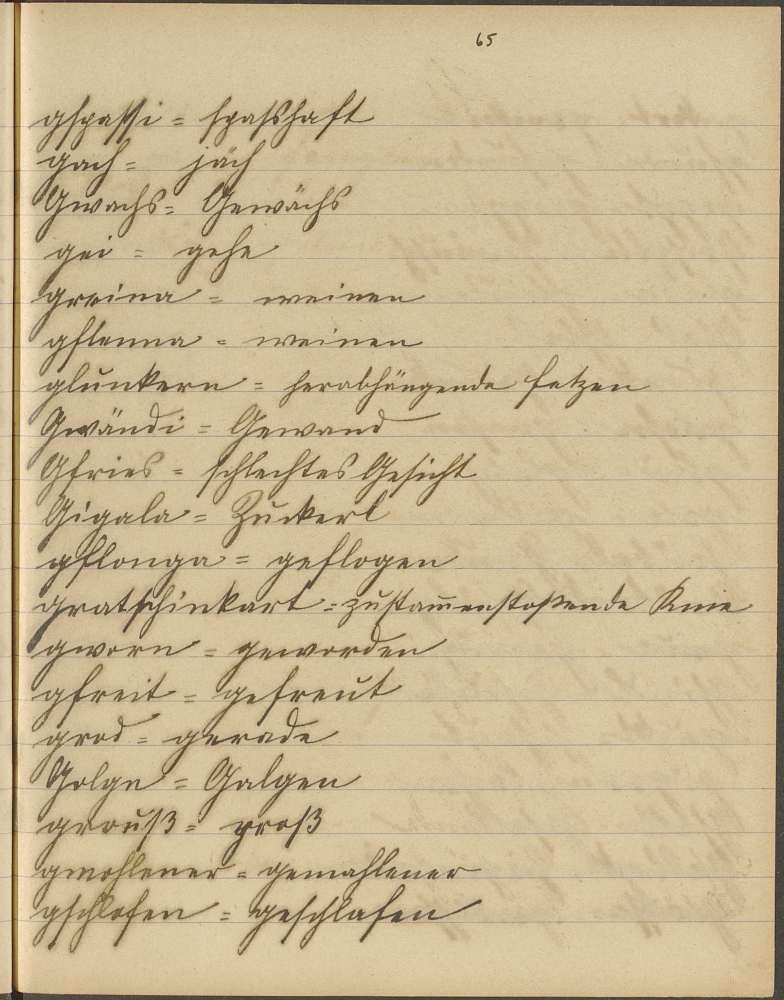 65
gspassi = spasshaft
gach = jäch
Gwachs = Gewächs
gei = gehe
greina = weinen
gflenna = weinen
glunkern = herabhängende fetzen
Gwändi = Gewand
Gfries = schlechtes Gesicht
Gigala = Zuckerl
gflonga = geflogen
gratschinkart = zustam̅enstoßende Knie
gworn = geworden
gfreit = gefreut
grod = gerade
Golgn = Galgen
grouß = groß
gmohlener = gemahlener
gschlofen = geschlafen